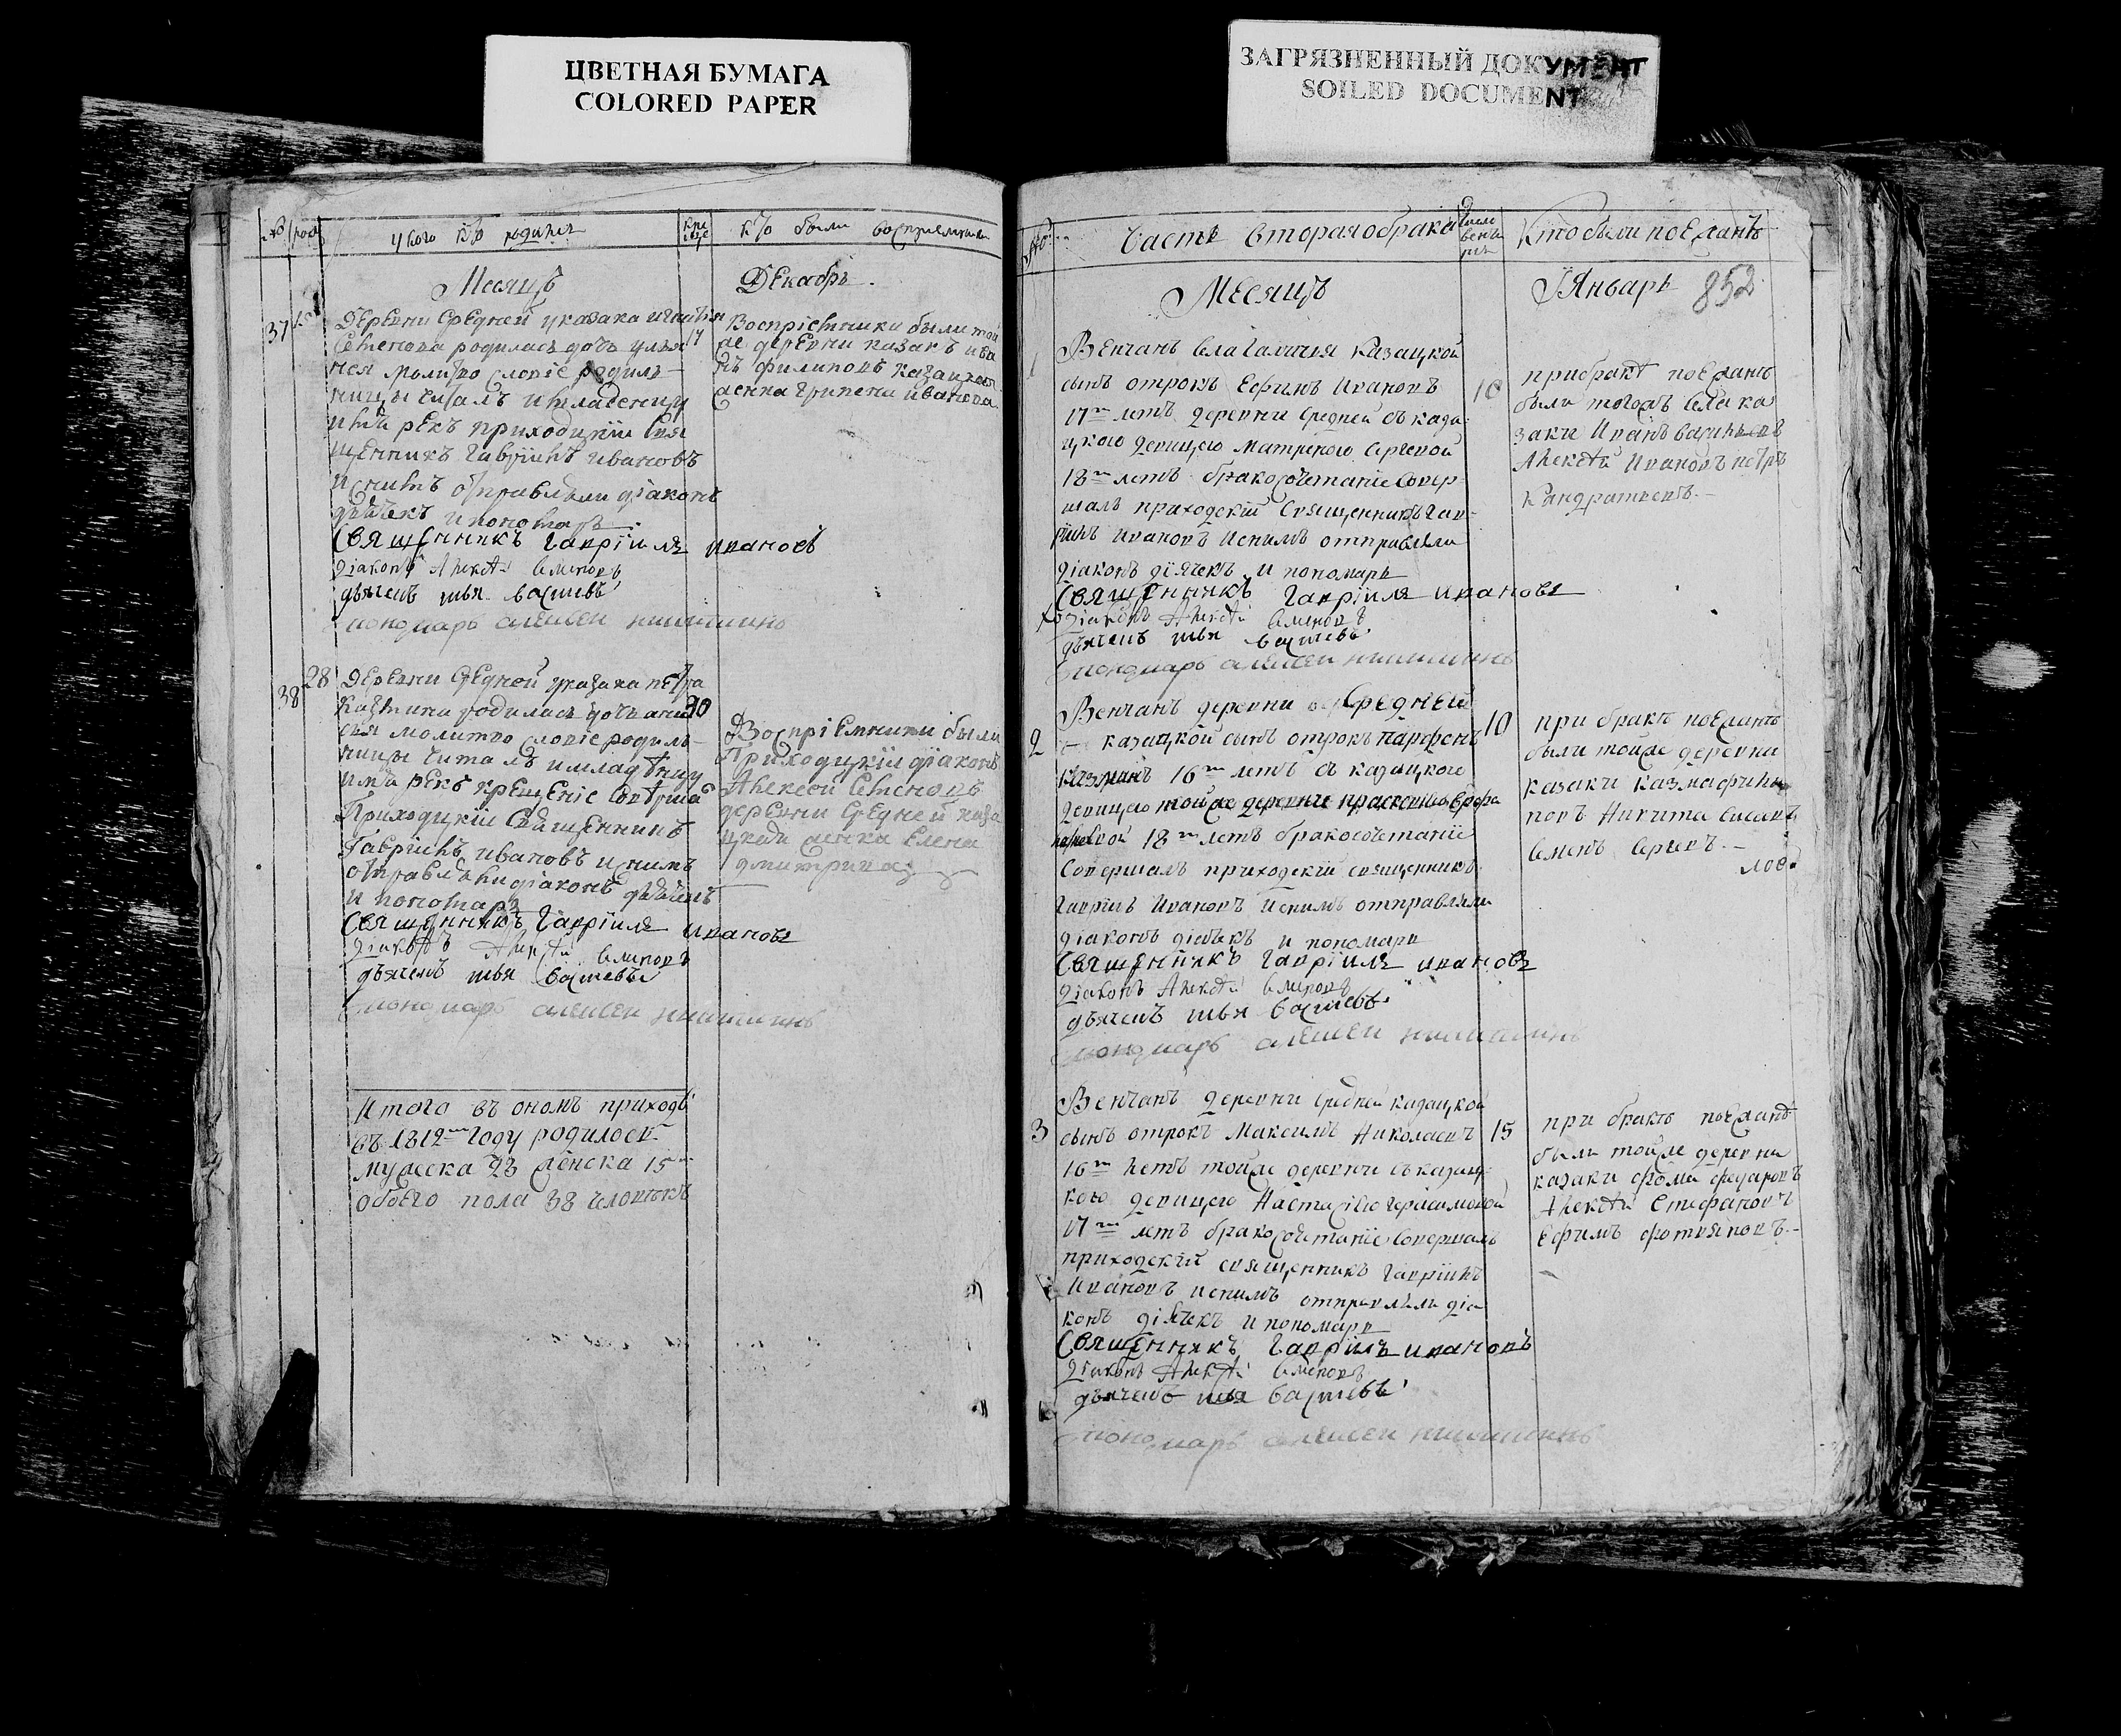 ЦВЕТНАЯ БУМАГА
COLORED PAPER
ЗАГРЯЗНЕННЫЙ ДОКУМЕНТ
SOILED DOCUMENT
у кого кто родился
кто были восприемники
Месяцъ Декабрь
37
Деревни Средней у казака игнатья
Семенова родилась дочь улья
17
нея молитво словіе родиль-
ницы читалъ и младенцу
имя рекъ приходцкїи Свя
щенникъ Гавріилъ ивановъ
и снимъ отправляли діаконъ
дьячекъ и пономарь
Священникъ Гавріилъ ивановъ
діаконъ Алексѣй Семеновъ
дьячекъ илья Васильевъ
пономарь алексеи никитинъ
Воспріемники были той
же деревни казакъ ива
нъ филиповъ казацкая
женка Грипена иванова
38 28
Деревни Средной у казака петра
Казмина родилась дочь ани
30
сья молитво словіе родиль-
ницы читалъ и младенцу
имя рекъ крещеніе совершалъ
Приходцкіи Священникъ
Гавріилъ ивановъ и снимъ
отправляли діаконъ дьячекъ
и пономарь
Священникъ Гавріилъ ивановъ
діаконъ Алексѣй Семеновъ
дьячекъ илья Васильевъ
пономарь алексеи никитинъ
Воспріемники были
Приходцкіи діаконъ
Алексѣй Семеновъ
деревни Средней каза
цкая женка Елена
дмитриева
Итого въ ономъ приходѣ
въ 1812м году родилось
мужеска 23 женска 15
обоего пола 38 человѣкъ
Часть вторая о бракахъ
Кто были поезжанѣ
Месяцъ Январь 852
1
Венчанъ села Галичья Казацкой
сынъ отрокъ Ефимъ Ивановъ
10
17ти летъ деревни Средней съ каза-
цкою девицею Матреною Сергеевой
18ти летъ бракосочетаніе совер-
шалъ приходскій Священникъ Гав-
ріилъ Ивановъ и снимъ отправляли
діаконъ діячекъ и пономарь
Священникъ Гавріилъ ивановъ
діаконъ Алексѣй Семеновъ
дьячекъ илья Васильевъ
пономарь алексеи никитинъ
при бракѣ поезжанѣ
были тогожъ села ка
заки Иванъ Васильевъ
Алексѣй Ивановъ петръ
Кандратьевъ.-
2
Венчанъ деревни Средней
казацкой сынъ отрокъ парфенъ
10
казминъ 16ти летъ съ казацкою
девицею тойже деревни прасковьею
18ти летъ бракосочетаніе
Совершалъ приходскій священникъ
Гавріилъ Ивановъ и снимъ отправляли
діаконъ діячекъ и пономарь
Священникъ Гавріилъ ивановъ
діаконъ Алексѣй Семеновъ
дьячекъ илья Васильевъ
пономарь алексеи никитинъ
при бракѣ поезжанѣ
были тойже деревни
казаки казма филип
повъ Никита
Семенъ Сергевъ.-
3
Венчанъ деревни Средней казацкой
сынъ отрокъ Максимъ Николаевъ
15
16ти летъ тойже деревни съ казац-
кою девицею Настасіею Герасимовой
17ти летъ бракосочетаніе Совершалъ
приходскій священникъ Гавріилъ
Ивановъ и снимъ отправляли діа
конъ діячекъ и пономарь
Священникъ Гавріилъ ивановъ
діаконъ Алексѣй Семеновъ
дьячекъ илья Васильевъ
пономарь алексеи никитинъ
при бракѣ поезжанѣ
были тойже деревни
казаки фома федаровъ
Алексѣй Стефановъ
Ефимъ фотияновъ.-